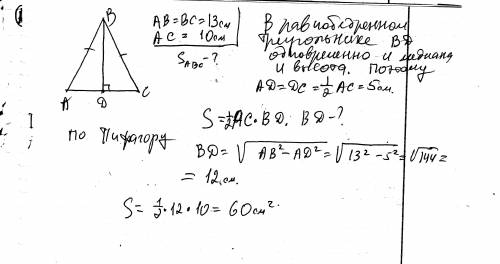 B
A
D
C
AB = BC = 13см
AC = 10см
S_ABC - ?
В равнобедренном
треугольнике BD
одновременно и медиана
и высота. Поэтому
AD = DC = 1/2 AC = 5см.
S = 1/2 AC · BD. BD - ?
по Пифагору
BD = √(AB² - AD²) = √(13² - 5²) = √144 =
= 12см.
S = 1/2 · 12 · 10 = 60см².